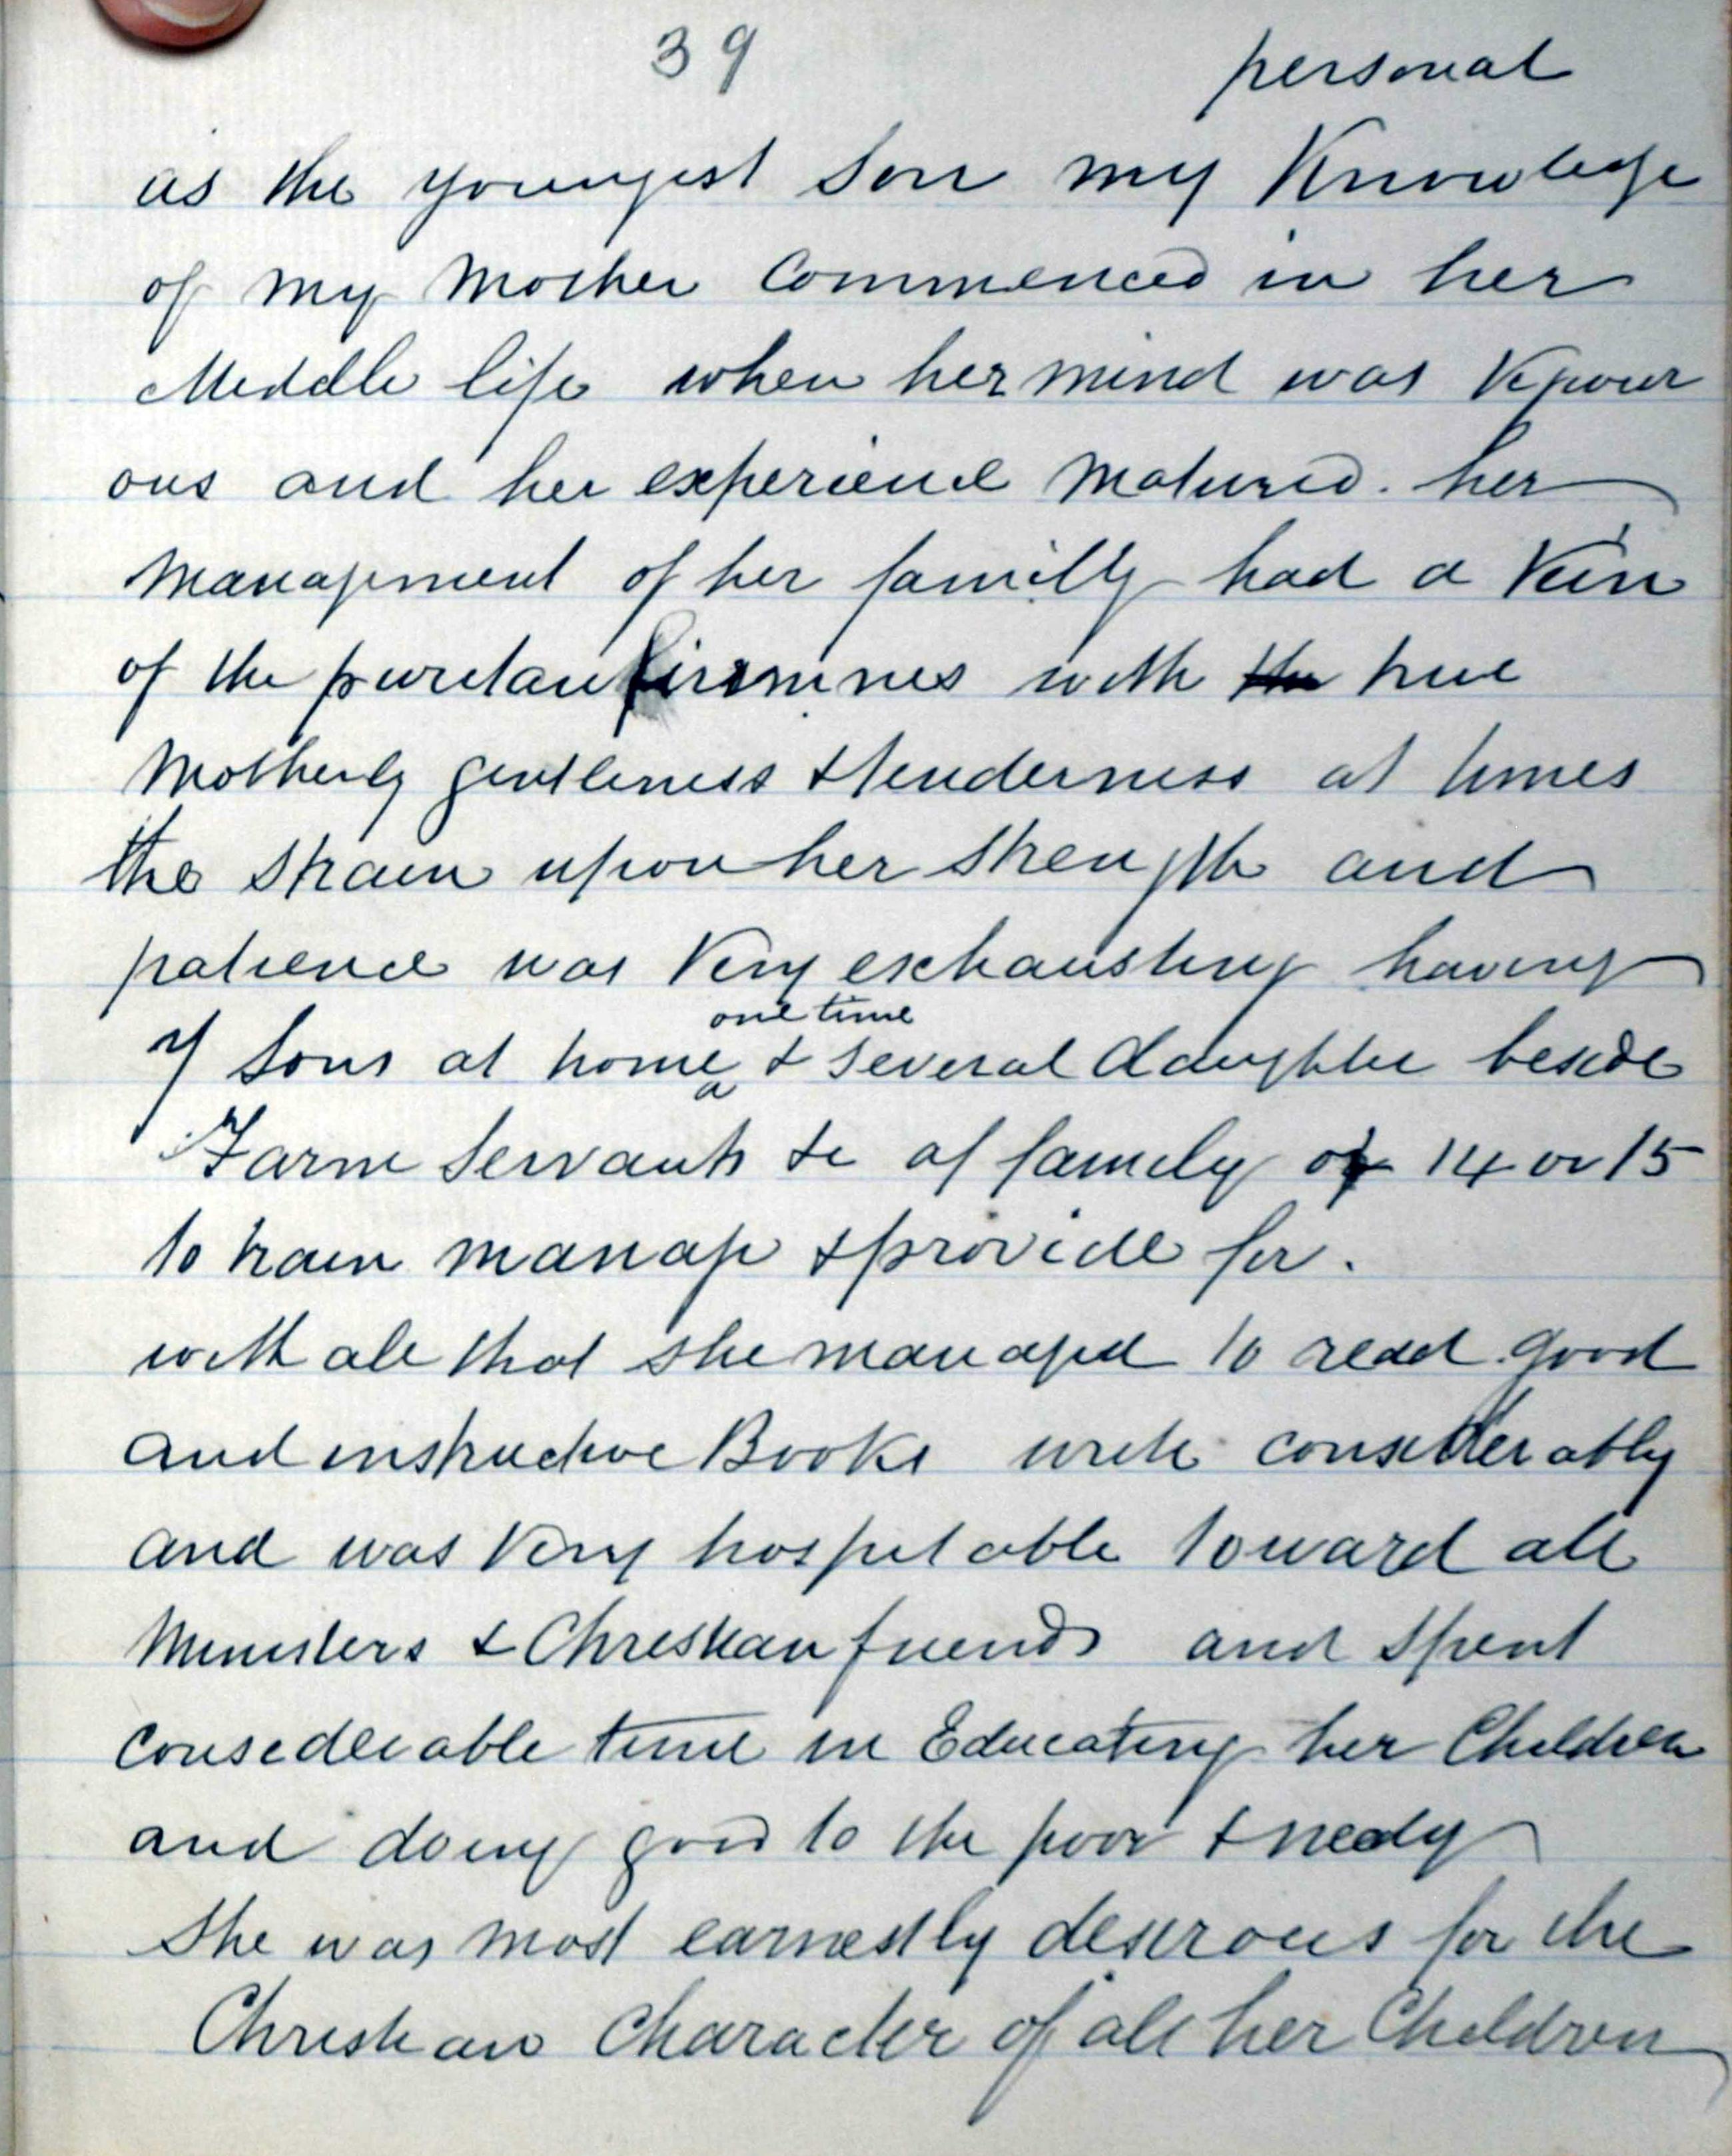 39
personal
as the youngest Son my Knowledge
of my Mother Commenced in her
Middle life when her mind was Vigour
ous and her experience Matured. her
Management of her familly had a Vein
of the puretan firmnes with the true
Motherly gentleness & tenderness at times
the Strain upon her Strength and
patience was Very exhausting having
one time
7 Sons at home & Several daughter beside
Farm Servants &c a family of 14 or 15
to train manage & provide for.
with all that she managed to read good
and instructive Books write considerably
and was Very hospitable toward all
Ministers & Christian friends and Spent
considerable time in Educating her Children
and doing good to the poor & needy
She was most earnestly desirous for the
Christian Character of all her Children